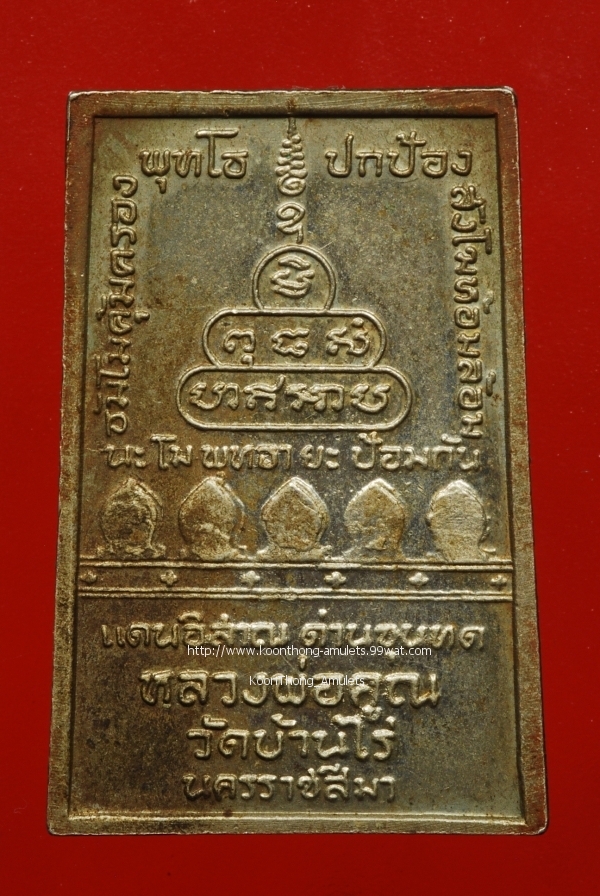 พุทโธ ปกป้อง
ธัมโมคุ้มครอง
สังโฆห้อมล้อม
นะ โม พุทธา ยะ ป้อมกัน
แดนอีสาณ ด่านขุนทด
http://www.koonthong-amulets.99wat.com
หลวงพ่อคูณ
KoonThong_Amulets
วัดบ้านไร่
นครราชสีมา